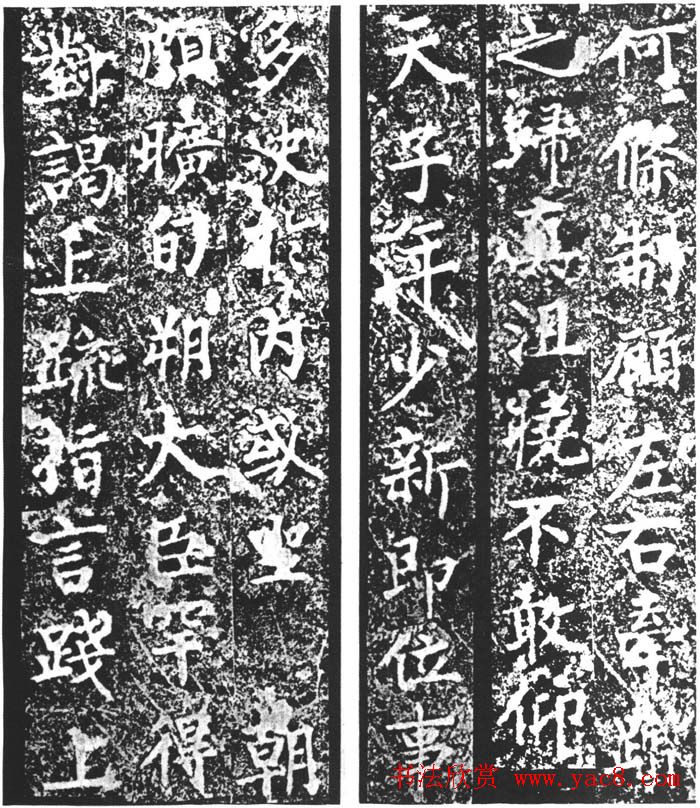 何條制左右
之歸真沮撓不敢仰
天子年少新即位事
多決於內或坐朝
頗曠旬朔大臣罕得
對謁上疏指言踐上
书法欣赏 www.yac8.com